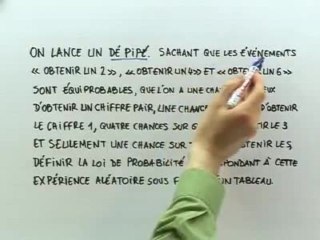 ON LANCE UN DÉ PIPÉ. SACHANT QUE LES ÉVÉNEMENTS
« OBTENIR UN 2 », « OBTENIR UN 4 » ET « OBTENIR UN 6 »
SONT ÉQUIPROBABLES, QUE L'ON A UNE
D'OBTENIR UN CHIFFRE PAIR, UNE CHANCE
LE CHIFFRE 1, QUATRE CHANCES SUR LE 3
ET SEULEMENT UNE CHANCE SUR
DÉFINIR LA LOI DE PROBABILITÉ À CETTE
EXPÉRIENCE ALÉATOIRE SOUS TABLEAU.